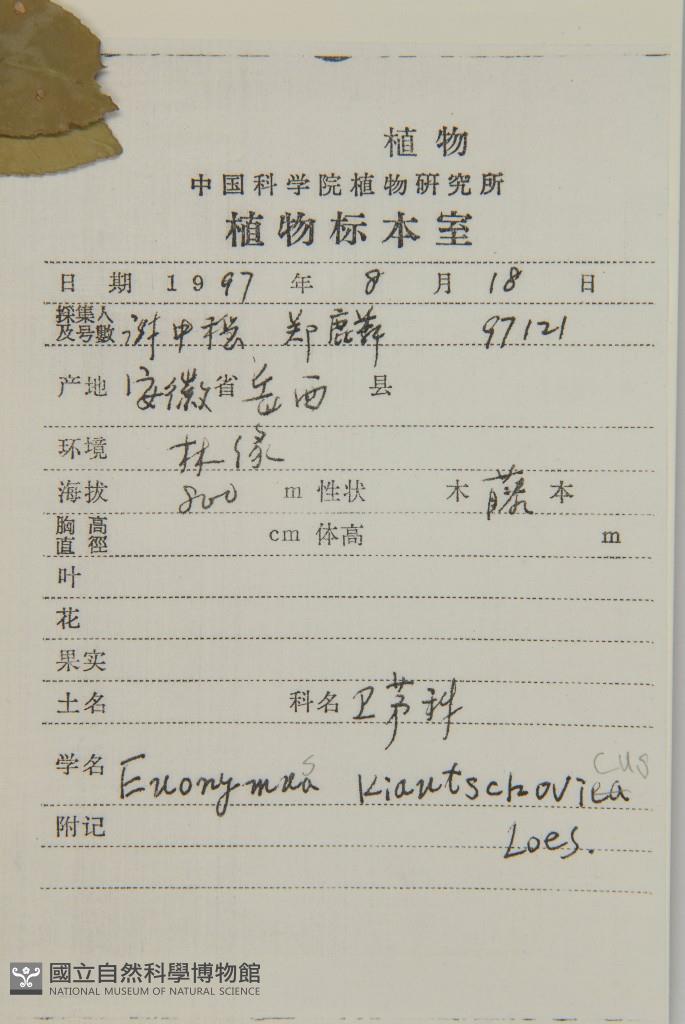 植物
中国科学院植物研究所
植物标本室
日期 1997 年 8 月 18 日
採集人及号數 谢中稳 郑鹿舞 97121
产地 安徽省 岳西 县
环境 林缘
海拔 800 m 性状 木 藤 本
胸高直徑 cm 体高 m
叶
花
果实
土名 科名 卫茅科
学名 Euonymua s Kiautschovica cus
附记 Loes.
國立自然科學博物館
NATIONAL MUSEUM OF NATURAL SCIENCE